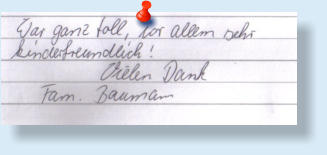 War ganz toll, vor allem sehr
kinderfreundlich!
Vielen Dank
Fam. Baumann